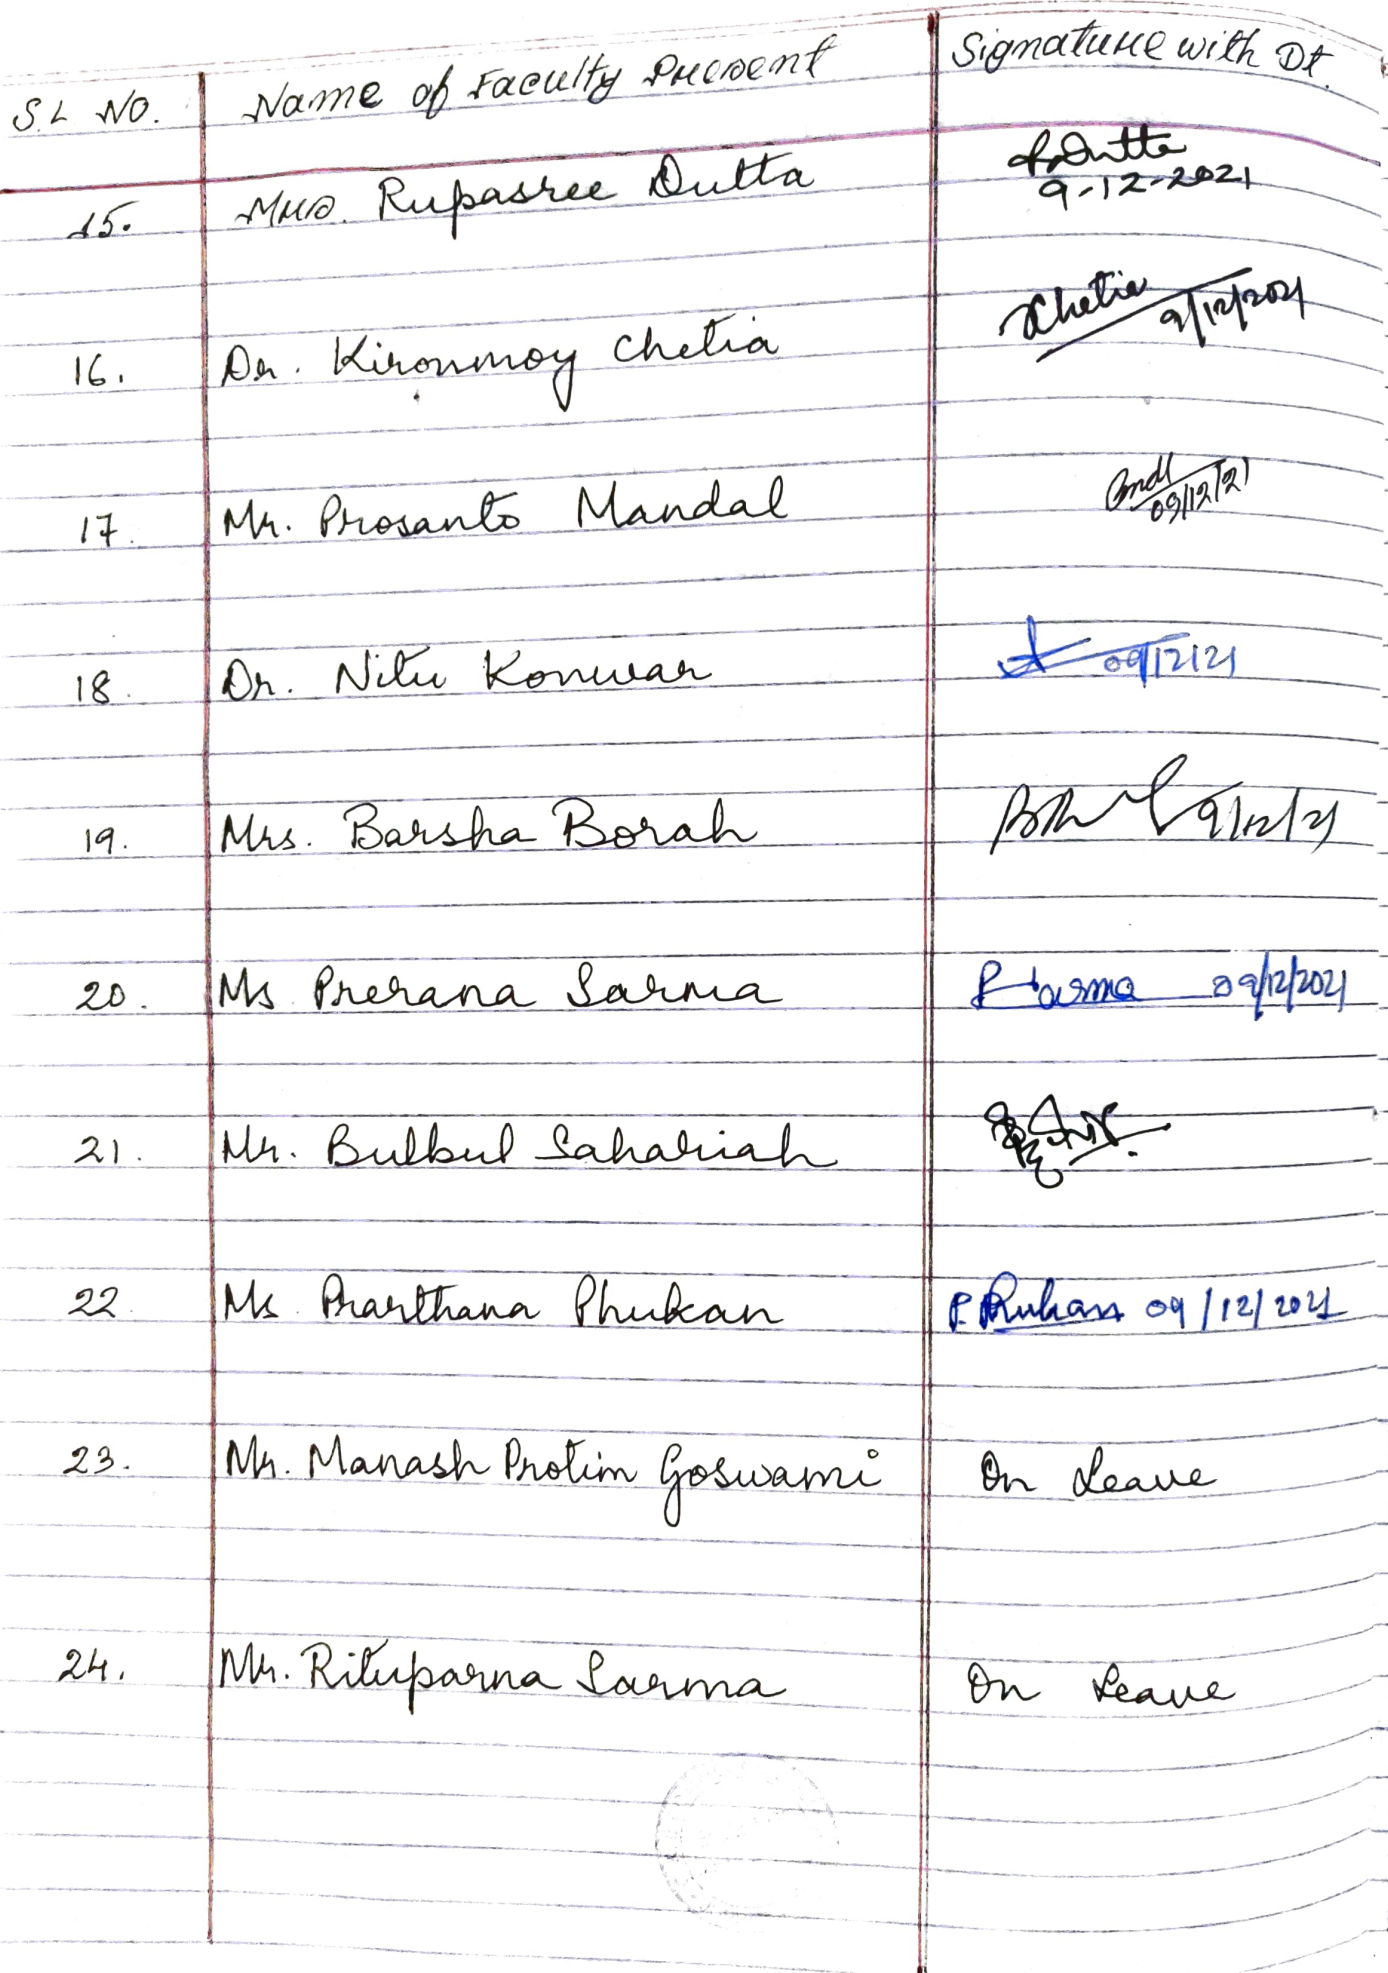 S.L NO. Name of Faculty Present Signature with Dt.
15. Mrs. Rupasree Dutta R. Dutta
9-12-2021
16. Dr. Kironmoy Chetia KChetia 9/12/2021
17. Mr. Prosanto Mandal
09/12/21
18. Dr. Nitu Konwar 09/12/21
19. Mrs. Barsha Borah 9/12/21
20. Ms Prerana Sarma P Sarma 09/12/2021
21. Mr. Bulbul Sahariah
22. Ms Prarthana Phukan P. Phukan 09/12/2021
23. Mr. Manash Protim Goswami On Leave
24. Mr. Rituparna Sarma On Leave